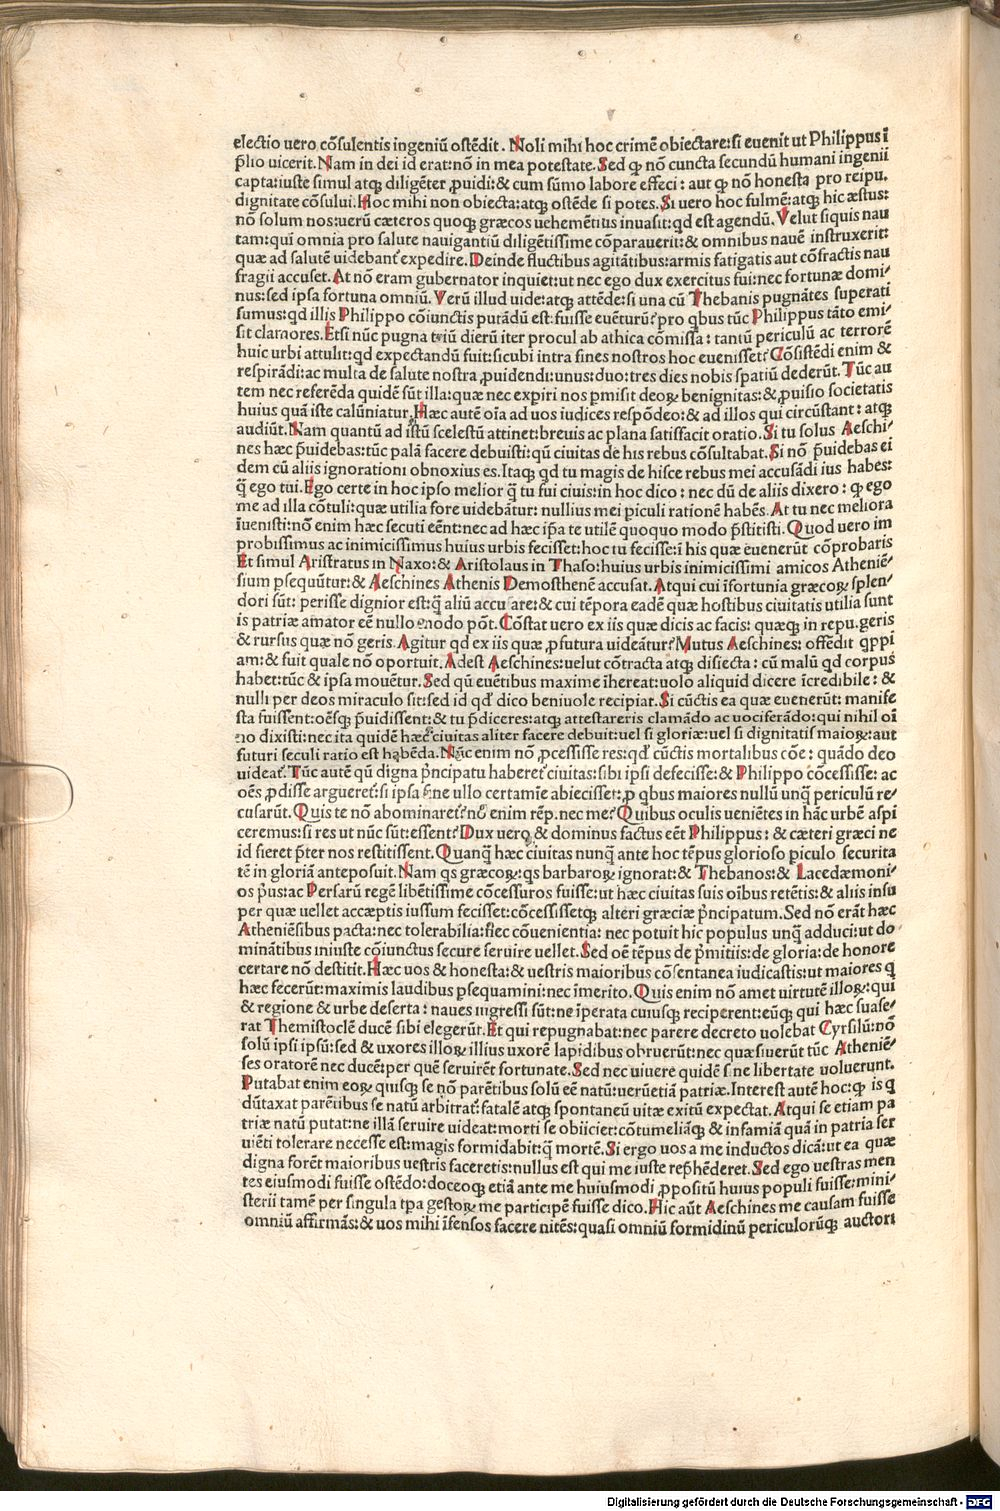 electio uero cōsulentis ingeniū ostēdit. Noli mihi hoc crimē obiectare:si euenit ut Philippus ī
p̄lio uicerit. Nam in dei id erat:nō in mea potestate. Sed ꝙ nō cuncta secundū humani ingenii
capta:iuste simul atqꝫ diligēter ꝓuidi:& cum sūmo labore effeci: aut ꝙ nō honesta pro reipu.
dignitate cōsului. Hoc mihi non obiecta:atqꝫ ostēde si potes. Si uero hoc fulmē:atqꝫ hic æstus:
nō solum nos:uerū cæteros quoqꝫ græcos uehemētius inuasit:qd est agendū. Velut siquis nau
tam:qui omnia pro salute nauigantiū diligētissime cōparauerit:& omnibus nauē instruxerit:
quæ ad salutē uidebant̄ expedire. Deinde fluctibus agitātibus:armis fatigatis aut cōfractis nau
fragii accuset. At nō eram gubernator inquiet:ut nec ego dux exercitus fui:nec fortunæ domi/
nus:sed ipsa fortuna omniū. Verū illud uide:atqꝫ attēde:si una cū Thebanis pugnātes superati
sumus:qd illis Philippo cōiunctis putādū est:fuisse euēturū? pro qbus tūc Philippus tāto emi/
sit clamores. Etsi nūc pugna triū dierū iter procul ab athica cōmissa: tantū periculū ac terrorē
huic urbi attulit:qd expectandū fuit:sicubi intra fines nostros hoc euenisset? Cōsistēdi enim &
respirādi:ac multa de salute nostra ꝓuidendi:unus:duo:tres dies nobis spatiū dederūt. Tūc au
tem nec referēda quidē sūt illa:quæ nec expiri nos pmisit deoꝝ benignitas:& ꝓuisio societatis
huius quā iste calūniatur. Hæc autē oīa ad uos iudices respōdeo:& ad illos qui circūstant: atqꝫ
audiūt. Nam quantū ad istū scelestū attinet:breuis ac plana satisfacit oratio. Si tu solus Aeschi/
nes hæc p̄uidebas:tūc palā facere debuisti:qū ciuitas de his rebus cōsultabat. Si nō p̄uidebas ei
dem cū aliis ignorationi obnoxius es. Itaqꝫ qd tu magis de hisce rebus mei accusādi ius habes:
q̄ ego tui. Ego certe in hoc ipso melior q̄ tu fui ciuis:in hoc dico: nec dū de aliis dixero: ꝙ ego
me ad illa cōtuli:quæ utilia fore uidebātur: nullius mei piculi rationē habēs. At tu nec meliora
īuenisti:nō enim hæc secuti eēnt:nec ad hæc ip̄a te utilē quoquo modo p̄stitisti. Quod uero im
probissimus ac inimicissimus huius urbis fecisset:hoc tu fecisse:ī his quæ euenerūt cōprobaris
Et simul Aristratus in Naxo:& Aristolaus in Thaso:huius urbis inimicissimi amicos Atheniē/
sium psequūtur:& Aeschines Athenis Demosthenē accusat. Atqui cui īfortunia græcoꝝ splen/
dori sūt: perisse dignior est:q̄ aliū accusare:& cui tēpora eadē quæ hostibus ciuitatis utilia sunt
is patriæ amator eē nullo modo pōt. Cōstat uero ex iis quæ dicis ac facis: quæqꝫ in repu. geris
& rursus quæ nō geris. Agitur qd ex iis quæ ꝓfutura uideātur? Mutus Aeschines: offēdit qppi
am:& fuit quale nō oportuit. Adest Aeschines:uelut cōtracta atqꝫ disiecta: cū malū qd corpus
habet:tūc & ipsa mouētur. Sed qū euētibus maxime īhereat:uolo aliquid dicere īcredibile: &
nulli per deos miraculo sit:sed id qd dico beniuole recipiar. Si cūctis ea quæ euenerūt: manife
sta fuissent:oēsqꝫ p̄uidissent:& tu p̄diceres:atqꝫ attestareris clamādo ac uociferādo:qui nihil oī
no dixisti:nec ita quidē hæc ciuitas aliter facere debuit:uel si gloriæ:uel si dignitatis maioꝝ:aut
futuri seculi ratio est habēda. Nūc enim nō ꝓcessisse res:qd cūctis mortalibus cōe: quādo deo
uideat̄. Tūc autē qū digna p̄ncipatu haberet̄ ciuitas:sibi ipsi defecisse:& Philippo cōcessisse: ac
oēs ꝓdisse argueret̄:si ipsa sine ullo certamīe abiecisset:ꝓ qbus maiores nullū unq̄ periculū re/
cusarūt. Quis te nō abominaret̄? nō enim rēp. nec me? Quibus oculis ueniētes in hāc urbē aspi
ceremus:si res ut nūc sūt:essent? Dux uero & dominus factus eēt Philippus: & cæteri græci ne
id fieret p̄ter nos restitissent. Quanq̄ hæc ciuitas nunq̄ ante hoc tēpus glorioso piculo securita
tē in gloriā anteposuit. Nam qs græcoꝝ:qs barbaroꝝ ignorat:& Thebanos:& Lacedæmoni/
os p̄us:ac Persarū regē libētissime cōcessuros fuisse:ut hæc ciuitas suis oībus retētis:& aliis insu
per quæ uellet accæptis iussum fecisset:cōcessissetqꝫ alteri græciæ p̄ncipatum. Sed nō erāt hæc
Atheniēsibus pacta:nec tolerabilia:nec cōuenientia: nec potuit hic populus unq̄ adduci:ut do/
minātibus iniuste cōiunctus secure seruire uellet. Sed oē tēpus de p̄mitiis:de gloria:de honore
certare nō destitit. Hæc uos & honesta:& uestris maioribus cōsentanea iudicastis:ut maiores q
hæc fecerūt:maximis laudibus psequamini:nec īmerito. Quis enim nō amet uirtutē illoꝝ:qui
& regione & urbe deserta: naues ingressi sūt:ne īperata cuiusqꝫ reciperent:eūqꝫ qui hæc suase/
rat Themistoclē ducē sibi elegerūt. Et qui repugnabat:nec parere decreto uolebat Cyrsilū:nō
solū ipsi ipsū:sed & uxores illoꝝ illius uxorē lapidibus obruerūt:nec quæsiuerūt tūc Atheniē/
ses oratorē nec ducē:per quē seruirēt fortunate. Sed nec uiuere quidē sine libertate uoluerunt.
Putabat enim eoꝝ quisqꝫ se nō parētibus solū eē natū:uerūetiā patriæ. Interest autē hoc:ꝙ is q
dūtaxat parētibus se natū arbitrat̄:fatalē atqꝫ spontaneū uitæ exitū expectat. Atqui se etiam pa
triæ natū putat:ne illā seruire uideat:morti se obiiciet:cōtumeliāqꝫ & infamiā quā in patria ser
uiēti tolerare necesse est:magis formidabit:q̄ mortē. Si ergo uos a me inductos dicā:ut ea quæ
digna forēt maioribus uestris faceretis:nullus est qui me iuste rep̄hēderet. Sed ego uestras men
tes eiusmodi fuisse ostēdo:doceoqꝫ etiā ante me huiusmodi ꝓpositū huius populi fuisse:mini/
sterii tamē per singula tpa gestoꝝ me participē fuisse dico. Hic aūt Aeschines me causam fuisse
omniū affirmās:& uos mihi īfensos facere nitēs:quasi omniū formidinū periculorūqꝫ auctori
Digitalisierung gefördert durch die Deutsche Forschungsgemeinschaft - DFG